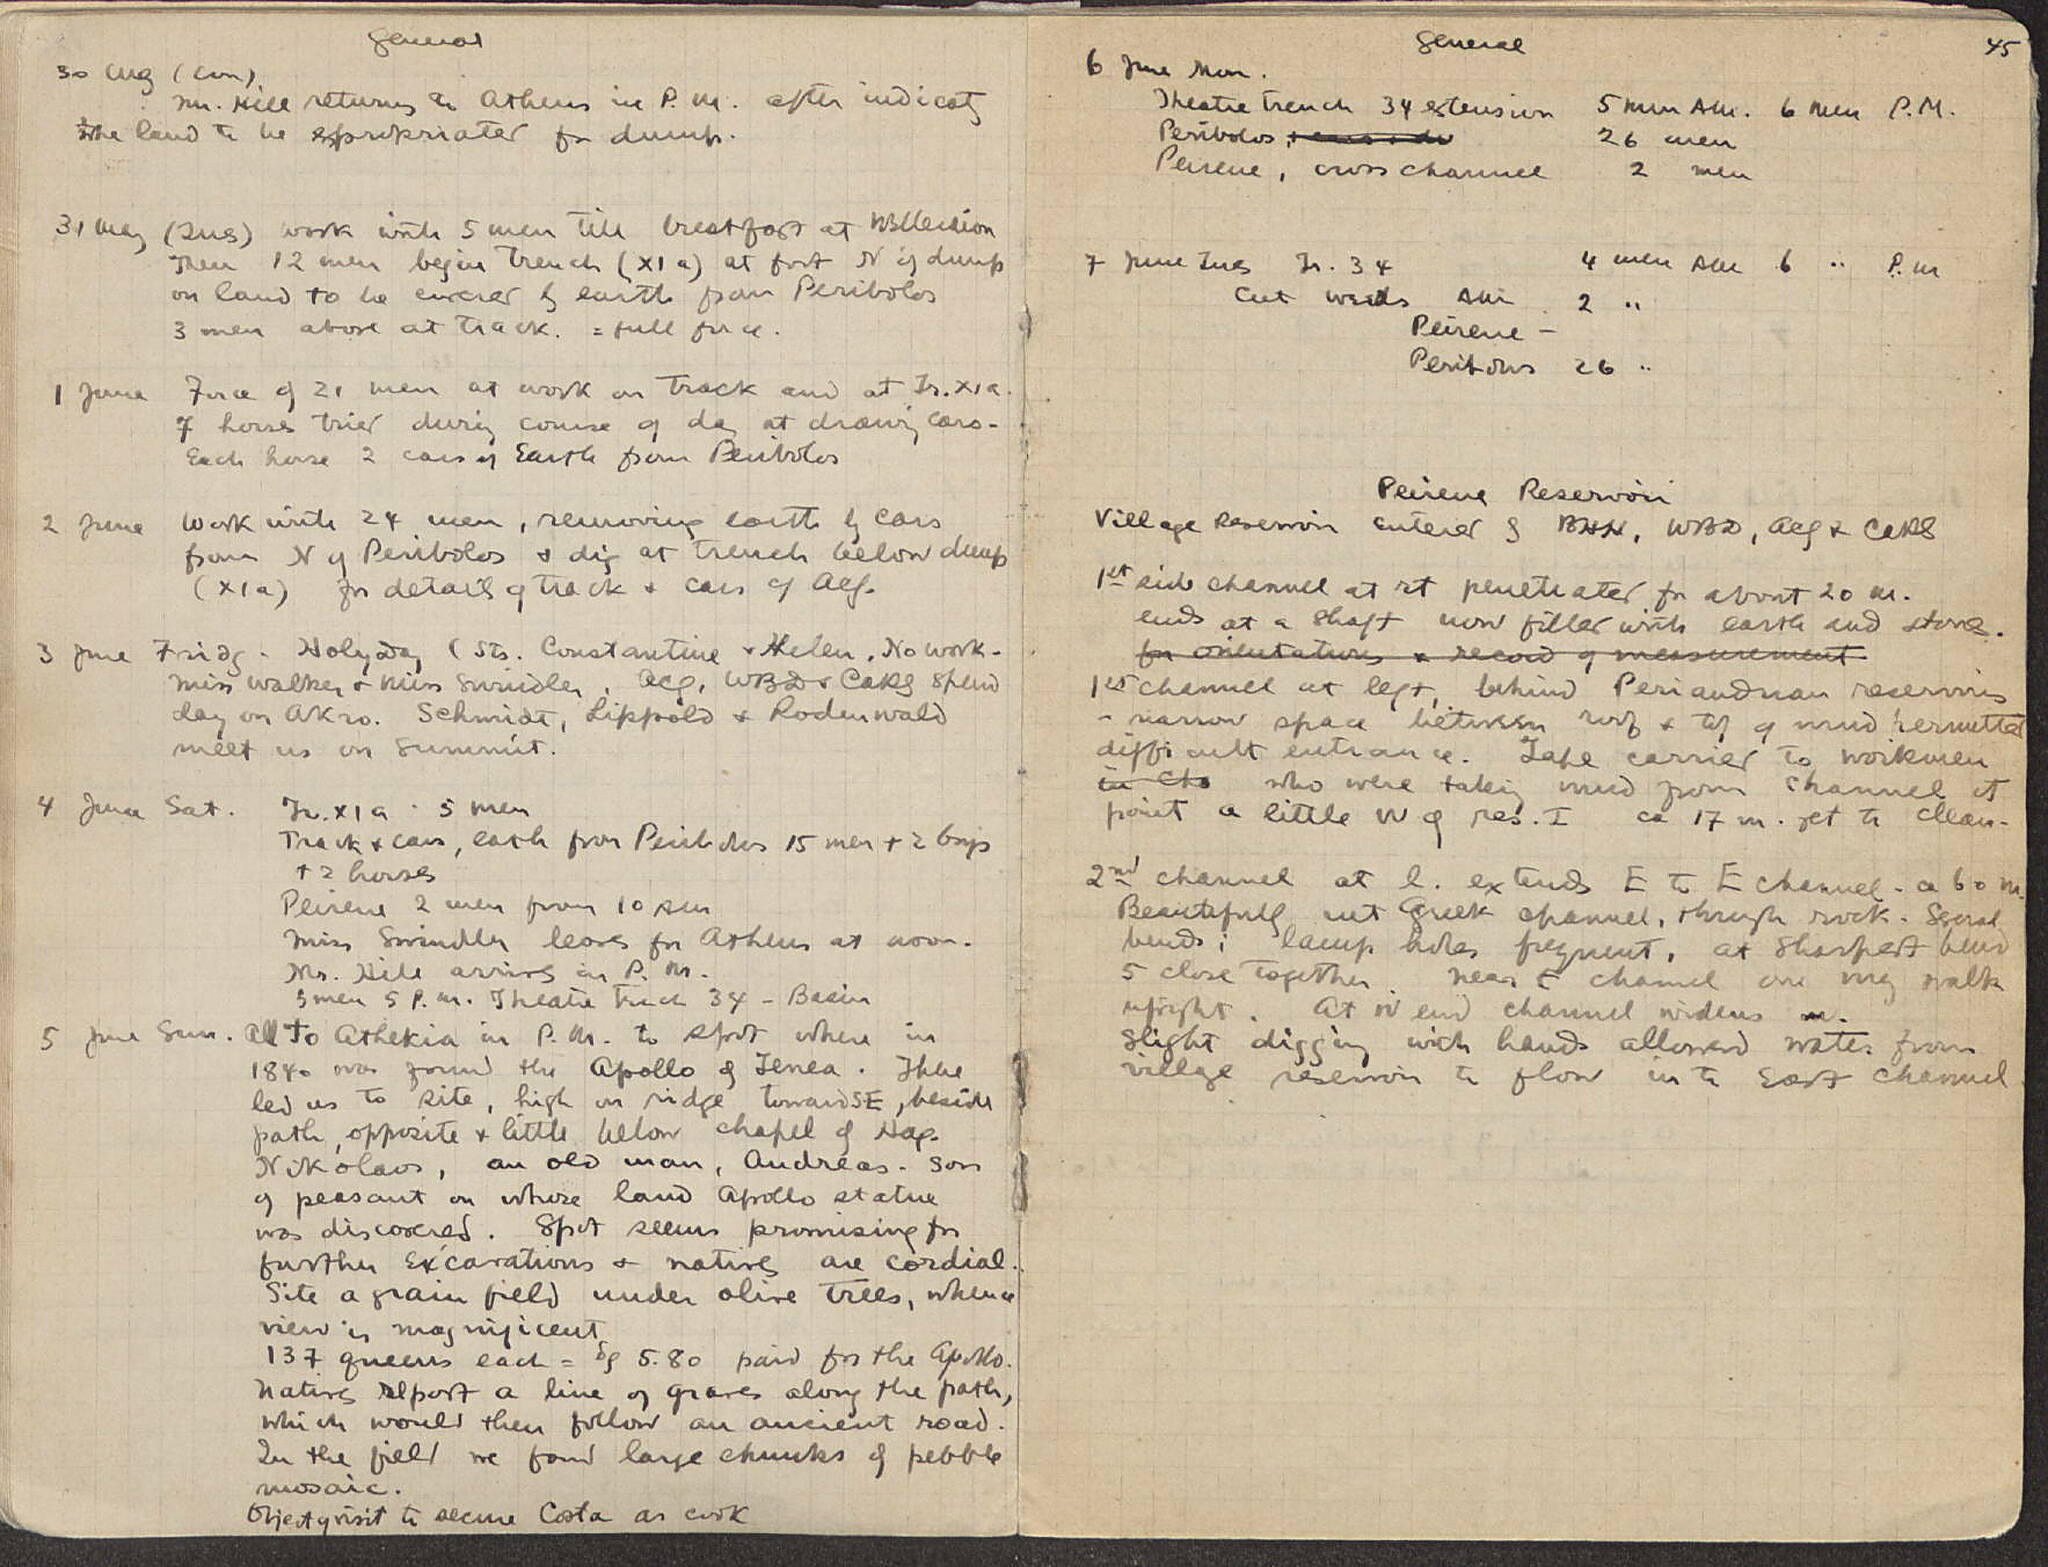 General
30 Aug (con)
Mr. Hill returns to Athens in P.M. after indicatg
the land to be expropriated for dump.
31 May (Tues) work with 5 men till breakfast at
Then 12 men begin trench (XIa) at foot N of dump
on land to be covered by earth from Peribolos
3 men above at track. = full force.
1 June Force of 21 men at work on track and at Tr. XIa.
7 horses tried during course of day at drawing cars -
Each horse 2 cars of Earth from Peribolos
2 June Work with 24 men, removing earth by cars
from N of Peribolos & dig at trench below dump
(XIa) for details of track & cars cf AEG.
3 June Friday - Holyday (Sts. Constantine & Helen, No work -
Miss Walker & Miss Swindler, AEG, WBD & CAKG spend
day on Akro. Schmidt, Lippold & Rodenwald
meet us on summit.
4 June Sat. Tr. XIa - 5 men
Track & cars, earth from Peribolos 15 men + 2 boys
+ 2 horses
Peirene 2 men from 10 AM
Miss Swindler leaves for Athens at noon.
Mr. Hill arrives in P.M.
3 men 5 P.M. Theatre trench 34 - Basin
5 June Sun. All to Athikia in P.M. to spot where in
1840 was found the Apollo of Tenea. There
led us to site, high on ridge toward SE, beside
path, opposite & little below chapel of Hag.
Nikolaos, an old man, Andreas - son
of peasant on whose land Apollo statue
was discovered. Spot seems promising for
further Excavations & natives are cordial.
Site a grain field under olive trees, whence
view is magnificent
137 queens each = 5.80 paid for the Apollo.
Natives report a line of graves along the path,
which would then follow an ancient road.
In the field we found large chunks of pebble
mosaic.
Object of visit to secure Costa as cook
General 45
6 June Mon.
Theatre trench 34 extension 5 men AM. 6 men P.M.
Peribolos 26 men
Peirene, cross channel 2 men
7 June Tues Tr. 34 4 men AM 6 " P.M
Cut weeds AM. 2 "
Peirene -
Peribolos 26 "
Peirene Reservoir
Village Reservoir entered by BHH, WBD, AEG & CAKG
1st side channel at rt penetrated for about 20 m.
ends at a shaft now filled with earth and stones.
for orientations & record of measurement
1st channel at left, behind Periandrian reservoirs
- narrow space between roof & top of mud permitted
difficult entrance. Tape carried to workmen
who were taking mud from channel at
point a little W of res. I ca 17 m. yet to clean -
2nd channel at l. extends E to E channel - ca 60 m.
Beautifully cut Greek channel, through rock. Several
bends; lamp holes frequent, at sharpest bend
5 close together. Near E channel one may walk
upright. At W end channel widens m.
Slight digging with hands allowed water from
village reservoir to flow into East channel.